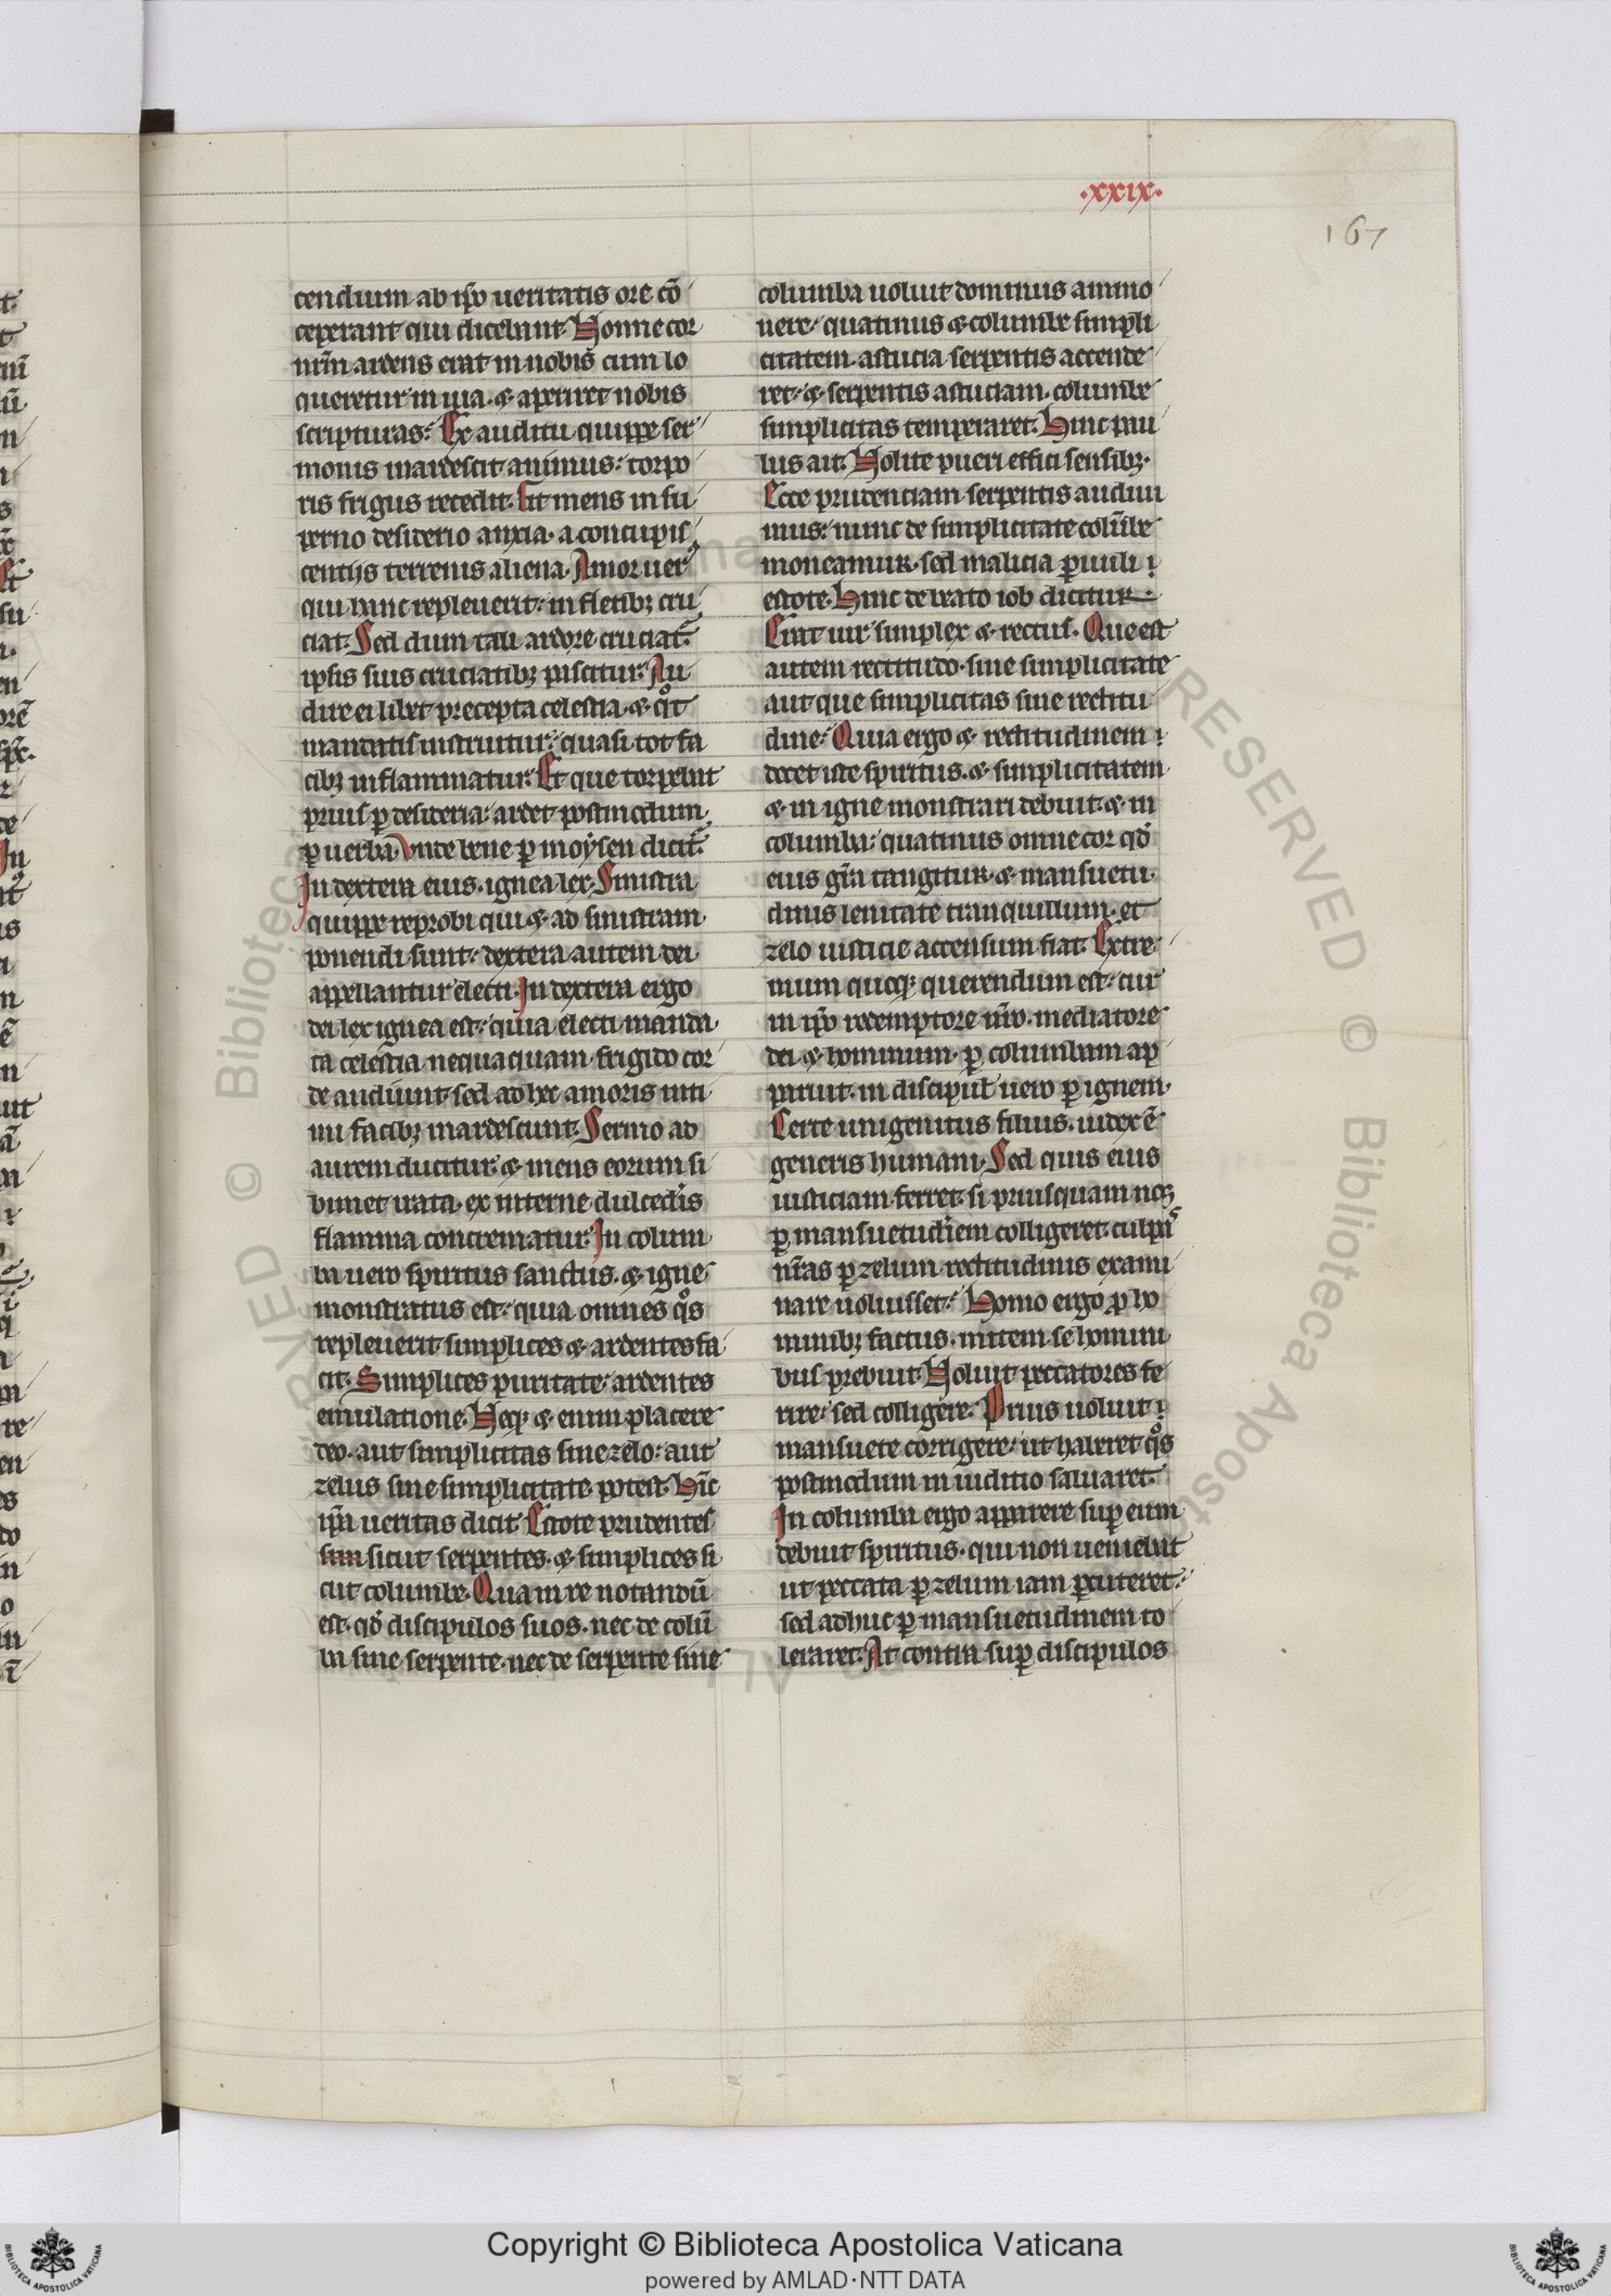 ·xxix·
167
cendium ab ip̄o ueritatis ore cō
ceperant qui dicebant. Nonne cor
nr̄m ardens erat in nobis cum lo
queretur in uia. & aperiret nobis
scripturas. Ex auditu quippe ser
monis inardescit animus. torpo
ris frigus recedit. fit mens in su
perno desiderio anxia. a concupis
centiis terrenis aliena. Amor uer᷒
qui hanc repleuerit. in fletibꝫ cru
ciat. Sed dum tali ardore cruciat᷒.
ipsis suis cruciatibꝫ pascitur. Au
dire ei libet precepta celestia. & qͦt
mandatis instruitur. quasi tot fa
cibꝫ inflammatur. Et que torpebat
prius ꝑ desideria. ardet postmodum
ꝑ uerba. Vnde bene ꝑ moysen dicit᷒.
In dextera eius. ignea lex. Sinistra
quippe reprobi qui & ad sinistram
ponendi sunt. dextera autem dei
appellantur electi. In dextera ergo
dei lex ignea est. quia electi manda
ta celestia nequaquam frigido cor
de audiunt. sed ad hec amoris inti
mi facibꝫ inardescunt. Sermo ad
aurem ducitur. & mens eorum si
bimet irata. ex interne dulcedīs
flamma concrematur. In colum
ba uero spiritus sanctus. & igne
monstratus est. quia omnes qͦs
repleuerit simplices & ardentes fa
cit. Simplices puritate. ardentes
emulatione. Neqꝫ & enim placere
deo. aut simplicitas sine zelo. aut
zelus sine simplicitate potest. Hīc
ip̄a ueritas dicit. Estote prudentes
sim sicut serpentes. & simplices si
cut columbe. Qua in re notandū
est. qd̄ discipulos suos. nec de colū
ba sine serpente. nec de serpente sine
columba uoluit dominus ammo
nere. quatinus & columbe simpli
citatem. astucia serpentis accende
ret. & serpentis astuciam. columbe
simplicitas temperaret. Hinc pau
lus ait. Nolite pueri effici sensibꝫ.
Ecce prudenciam serpentis audiui
mus. nunc de simplicitate colūbe
moneamur. sed malicia ꝑuuli
estote. Hinc de beato iob dicitur.
Erat uir simplex & rectus. Que est
autem rectitudo. sine simplicitate
aut que simplicitas sine rectitu
dine. Quia ergo & rectitudinem
docet iste spiritus. & simplicitatem
& in igne monstrari debuit. & in
columba. quatinus omne cor qd̄
eius gr̄a tangitur. & mansuetu
dinis lenitate tranquillum. et
zelo iusticie accensum fiat. Extre
mum quoqꝫ querendum est. cur
in ip̄o redemptore nr̄o. mediatore
dei & hominum. ꝑ columbam ap
paruit. in discipul̄ uero ꝑ ignem.
Certe unigenitus filius. iudex ē
generis humani. Sed quis eius
iusticiam ferret. si priusquam nos
ꝑ mansuetudīem colligeret. culpas
nr̄as ꝑ zelum rectitudinis exami
nare uoluisset. Homo ergo ꝓ ho
minibꝫ factus. mitem se homini
bus prebuit. Noluit peccatores fe
rire. sed colligere. Prius uoluit
mansuete corrigere. ut haberet qͦs
postmodum in iuditio saluaret.
In columba ergo apparere suꝑ eum
debuit spiritus. qui non ueniebat
ut peccata ꝑ zelum iam ꝑcuteret.
sed adhuc ꝑ mansuetudinem to
leraret. At contra suꝑ discipulos
Copyright © Biblioteca Apostolica Vaticana
powered by AMLAD·NTT DATA